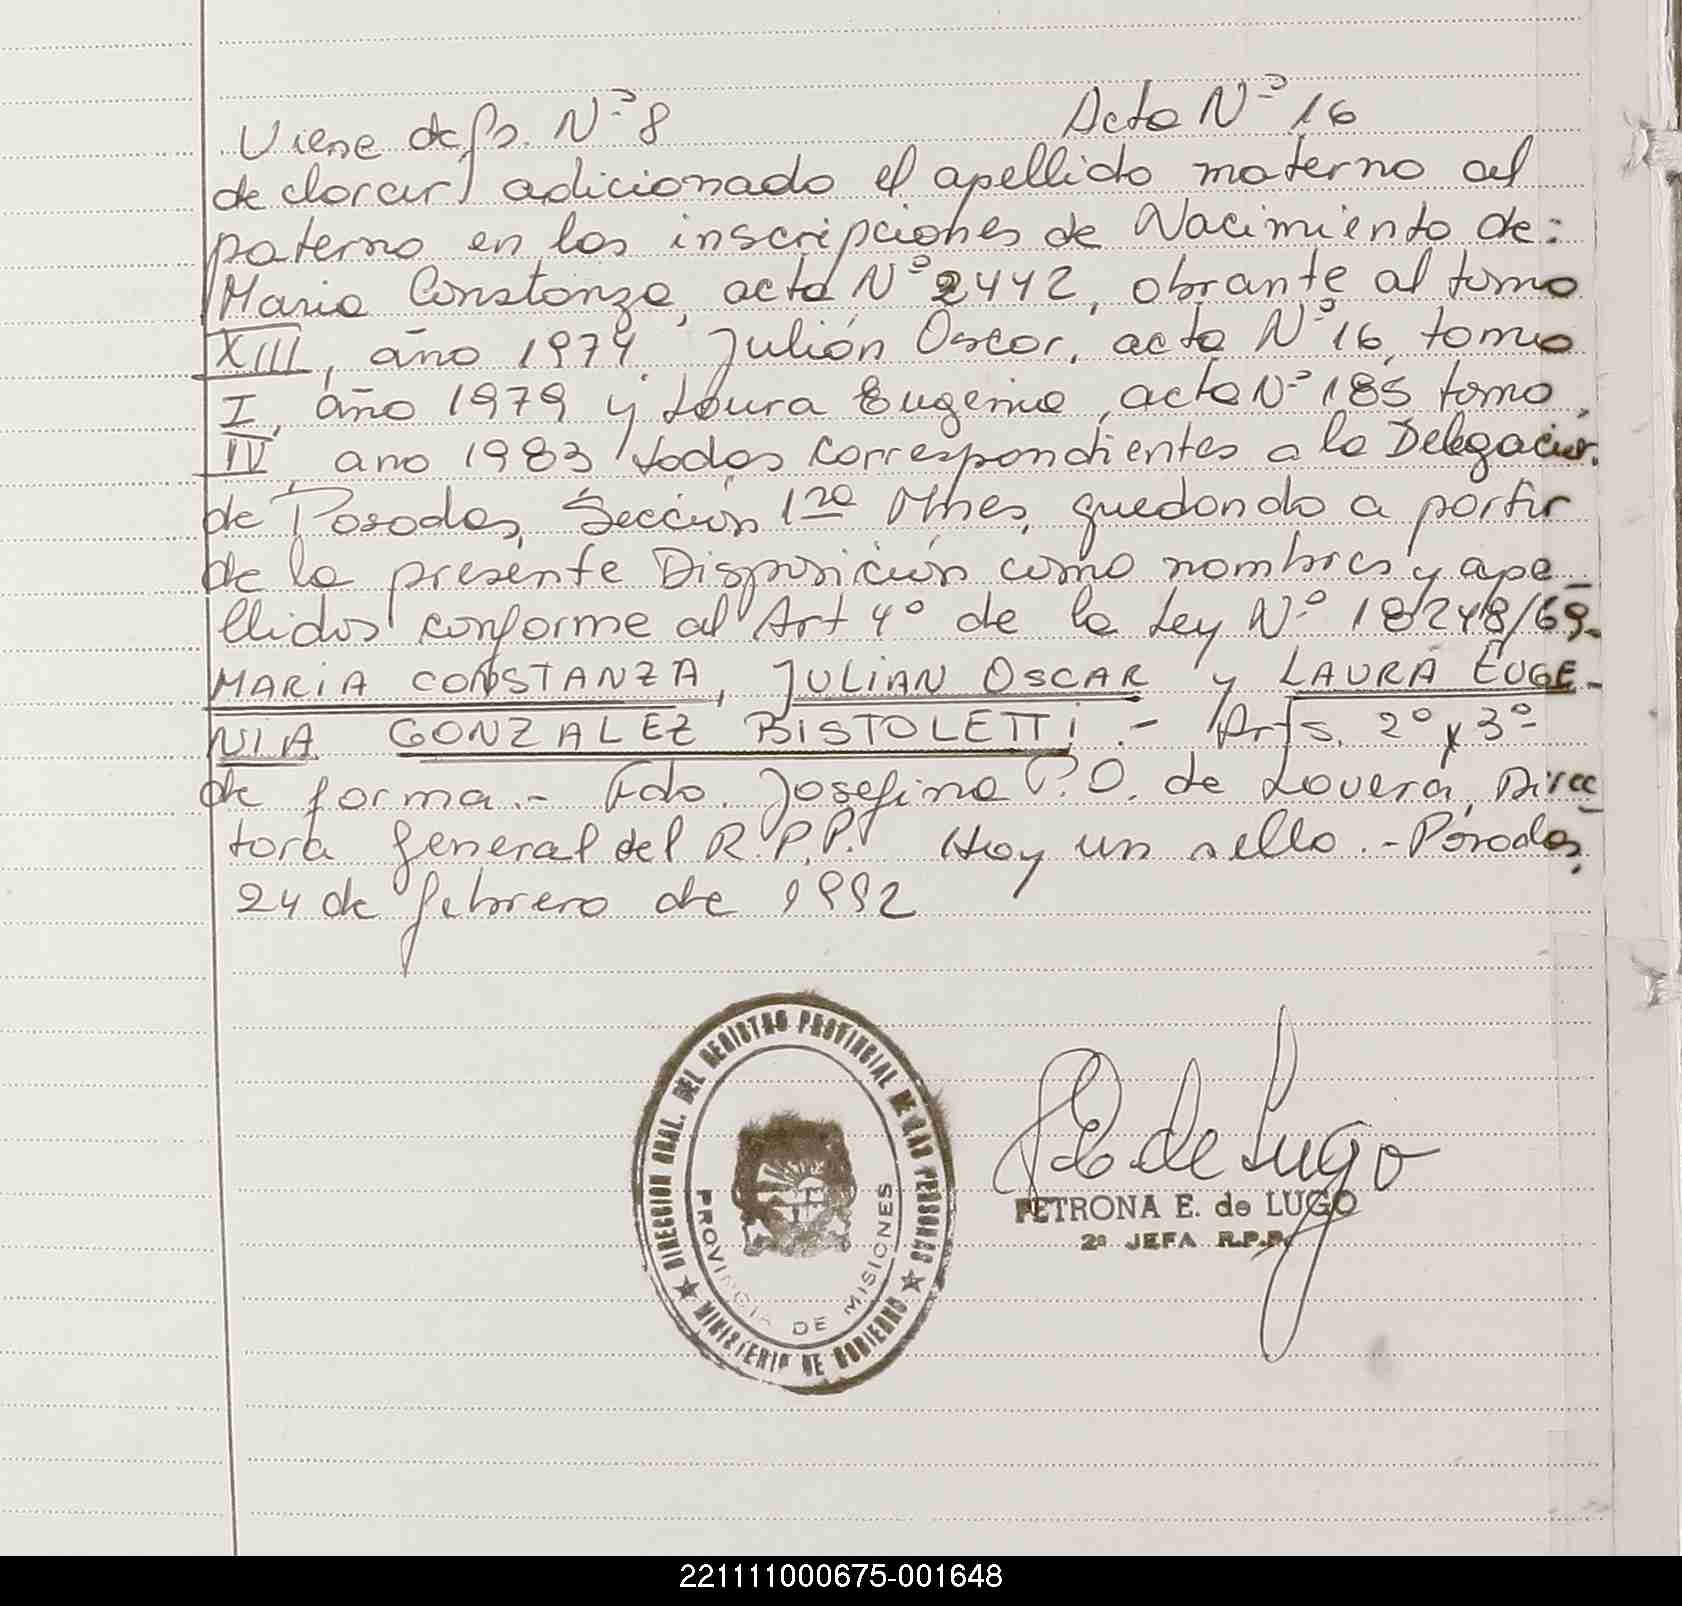 Viene de fs. Nº 8 Acta Nº 16
declarar adicionado el apellido materno al
paterno en las inscripciones de Nacimiento de:
Maria Constanza, acta Nº 2442, obrante al tomo
XIII, año 1974 Julián Oscar, acta Nº 16, tomo
I, año 1979 y Laura Eugenia, acta Nº 185 tomo,
IV, ano 1983 todas correspondientes a la Delegación
de Posadas, Sección 1ra Mnes, quedando a partir
de la presente Disposición como nombres y ape-
llidos conforme al Art 4º de la Ley Nº 18248/69.
MARIA CONSTANZA, JULIAN OSCAR y LAURA EUGE-
NIA GONZALEZ BISTOLETTI.- Arts. 2º y 3º
de forma.- Fdo. Josefina P.O. de Lovera, Direc-
tora General del R.P.P. Hay un sello.- Posadas,
24 de febrero de 1992
DIRECCION GRAL. DEL REGISTRO PROVINCIAL DE LAS PERSONAS
PROVINCIA DE MISIONES
MINISTERIO DE GOBIERNO
de Lugo
PETRONA E. de LUGO
2ª JEFA R.P.P.
221111000675-001648